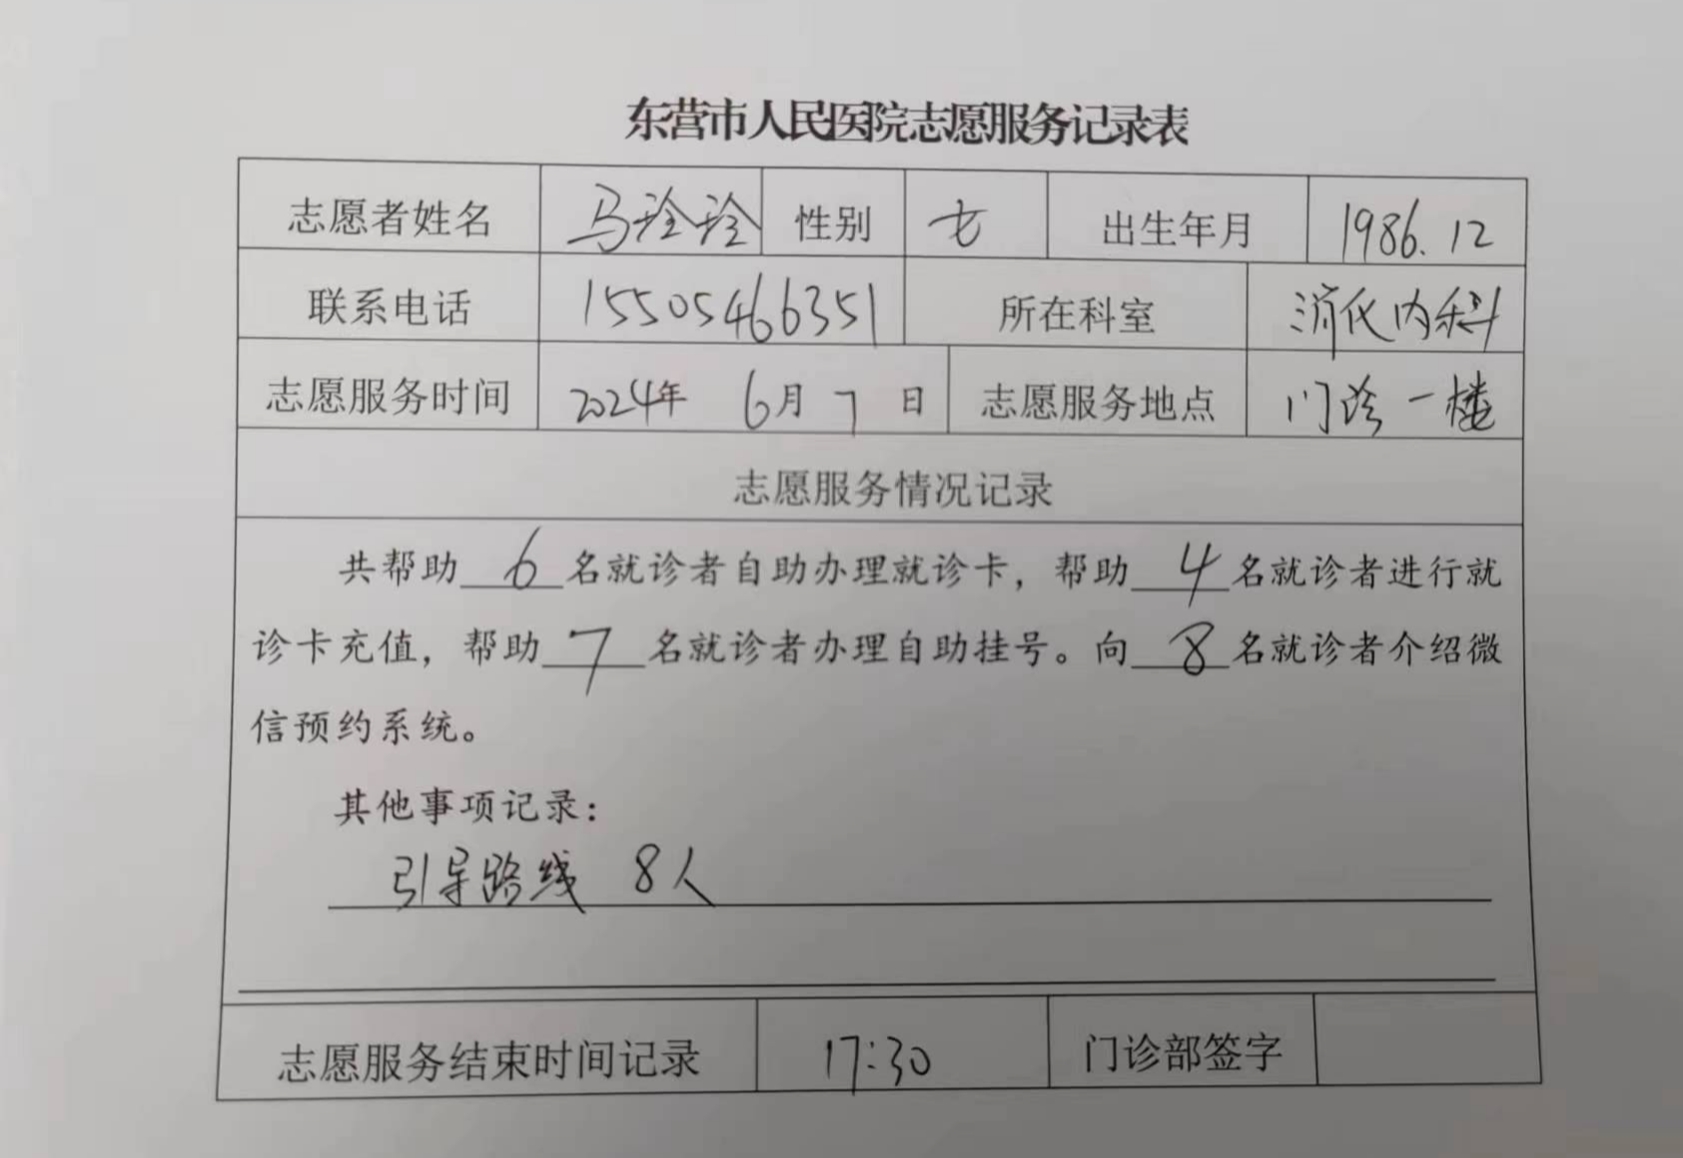 东营市人民医院志愿服务记录表
志愿者姓名 马玲玲 性别 女 出生年月 1986.12
联系电话 15505466351 所在科室 消化内科
志愿服务时间 2024年 6月 7 日 志愿服务地点 门诊一楼
志愿服务情况记录
共帮助 6 名就诊者自助办理就诊卡，帮助 4 名就诊者进行就
诊卡充值，帮助 7 名就诊者办理自助挂号。向 8 名就诊者介绍微
信预约系统。
其他事项记录：
引导路线 8人
志愿服务结束时间记录 17:30 门诊部签字